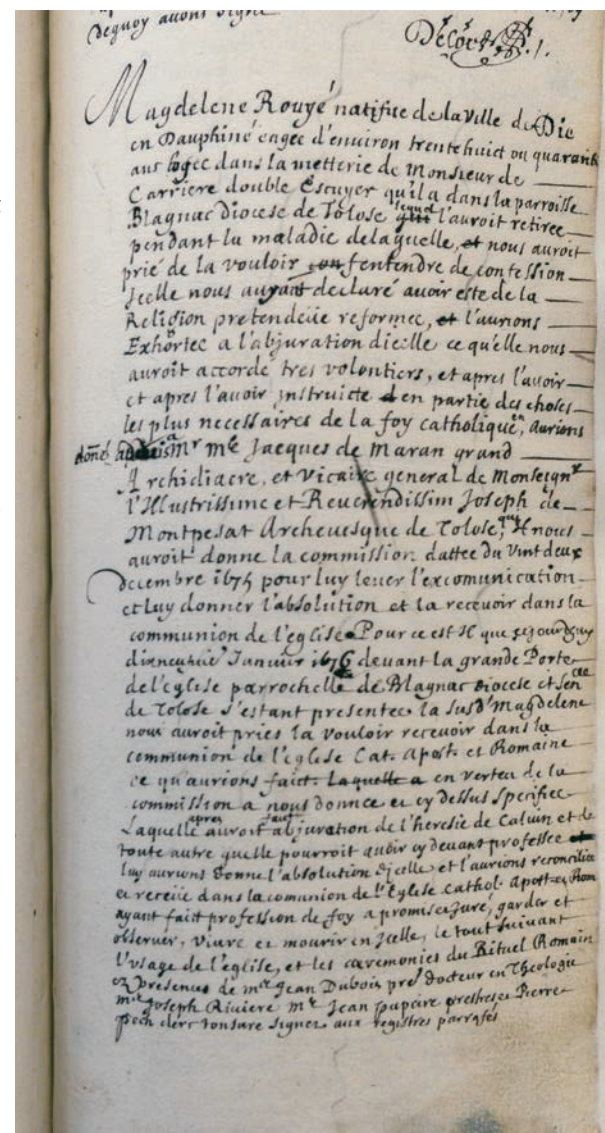 Deguoy avons signé
Magdelene Rouyé natifue de la Ville de Die
en Dauphiné eagee d'environ trente huict ou quarante
ans logee dans la metterie de Monsieur de
Carriere double Escuyer qu'il a dans la parroisse
Blagnac Diocese de Tolose lequel l'auroit retiree
pendant la maladie de laquelle, et nous auroit
prié de la vouloir entendre de confession
Icelle nous ayant declaré avoir este de la
Religion pretendeüe reformee, et l'aurions
Exhortee a l'abjuration d'icelle ce qu'elle nous
auroit accordé tres volontiers, et apres l'avoir
et apres l'avoir instruicte en partie des choses
les plus necessaires de la foy catholique, en aurions
donné a Mr Me Jacques de Maran grand
Archidiacre, et Vicaire general de Monseignr
l'Illustrissime et Reverendissim Joseph de
Montpesat Archevesque de Tolose, qui nous
auroit donne la commission dattee du vint deux
decembre 1675 pour luy lever l'excomunication
et luy donner l'absolution et la recevoir dans la
communion de l'eglise Pour ce est Il que cejourdhuy
dixneufuie Janvier 1676 devant la grande Porte
de l'eglise parrochelle de Blagnac diocese et Sen cée
de Tolose s'estant presentee la susd' Magdelene
nous auroit priés la vouloir recevoir dans la
communion de l'eglise Cat. Apost. et Romaine
ce qu'aurions faict. Laquelle a en verteu de la
commission a nous donnee ei cy dessus specifiee
Laquelle apres auroit faict abjuration de l'heresie de Calvin et de
toute autre quelle pourroit auoir cy devant professee et
luy aurions donne l'absolution d'icelle et l'aurions reconciliee
et receüe dans la comunion de l'Eglise Cathol. Apost. et Rom
ayant faict profession de foy a promis et juré, garder et
observer, vivre et mourir en Icelle, le tout suivant
l'usage de l'eglise, et les ceremonies du Rituel Romain
ez presences de me Jean Dubois pre docteur en Theologie
me Joseph Riviere me Jean papaire prestres et Pierre
pech clerc tonsure signez aux registres parrafés